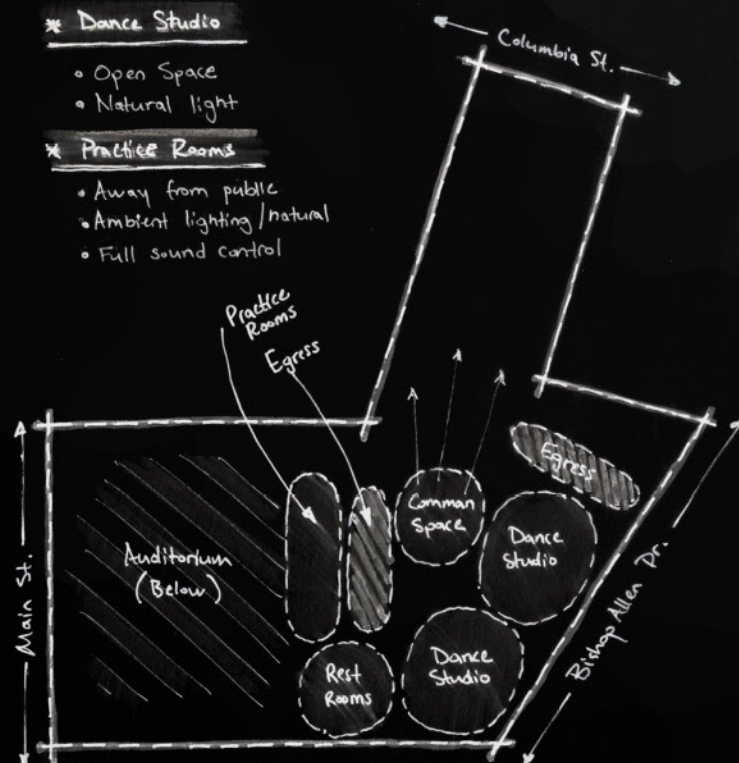 * Dance Studio
• Open Space
• Natural light
* Practice Rooms
• Away from public
• Ambient lighting/natural
• Full sound control
Columbia St.
Practice
Rooms
Egress
Egress
Comman
Space
Dance
Studio
Auditorium
(Below)
Main St.
Bishop Allen Dr.
Rest
Rooms
Dance
Studio